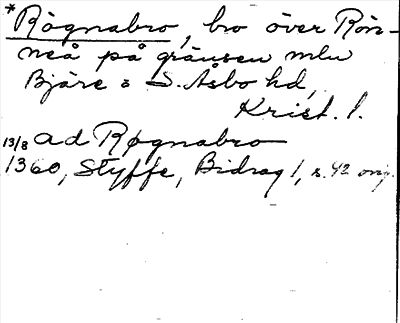 *Rögnabro, bro över Rön-
neå på gränsen mlu
Bjäre o S. Åsbo hd,
Krist. l.
13/8 ad Røgnabro
1360, Styffe, Bidrag 1, s. 42 orig.